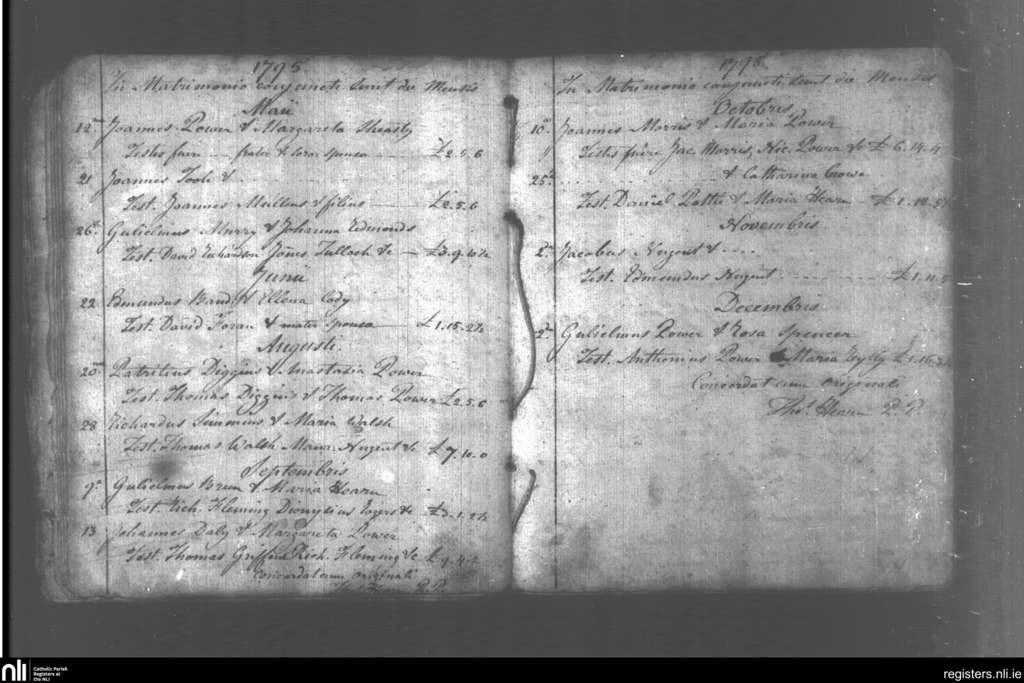 1795
In Matrimonio conjuncti sunt die Mensis
Maii
12a. Joannes Power & Margareta Sheasty
Testes fuere --- frater & soror sponsa --- £2.5.6
21 Joannes Toole & - - -
Test. Joannes Mullens & filius --- £2.5.6
26a. Gulielmus Murry & Johanna Edmonds
Test. David Richardson Jones Tulloch &c — £3.9.
Junii
22 Edmundus & Ellena Cody
Test. David Foran & mater sponsa £1.15.2½
Augusti
20 Patritius Diggins & Anastasia Power
Test. Thomas Diggins & Thomas Power £2.5.6
28 Richardus Simmons & Maria Walsh
Test. Thomas Walsh Maur. Nugent &c £7.10.0
Septembris
9a. Gulielmus Breen & Maria Hearn
Test. Rich. Fleming Dionysius Rogers &c £3.1.2½
13 Johannes Daly & Margareta Power
Test. Thomas Griffin Rich. Fleming &c £9.4.
Concordat cum originali
Thos. Hearn P.P.
1795
In Matrimonio conjuncti sunt die Mensis
Octobris
10a. Joannes Morris & Maria Power
" Testes fuere Jac. Morris, Nic. Power &c £6.14.4
25a. - - - & Catharina Crowe
Test. Daniel Pottle & Maria Hearn — £1.18.
Novembris
2a. Jacobus Nugent & - - -
Test. Edmundus Nugent - - - £1.11.
Decembris
2a. Gulielmus Power & Rosa Spencer
Test. Anthonius Power & Maria £1.16.
Concordat cum originali
Thos. Hearn P.P.
nli
Catholic Parish
Registers at
the NLI
registers.nli.ie